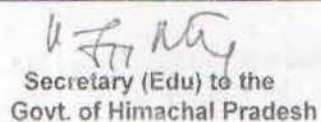 Secretary (Edu) to the
Govt. of Himachal Pradesh